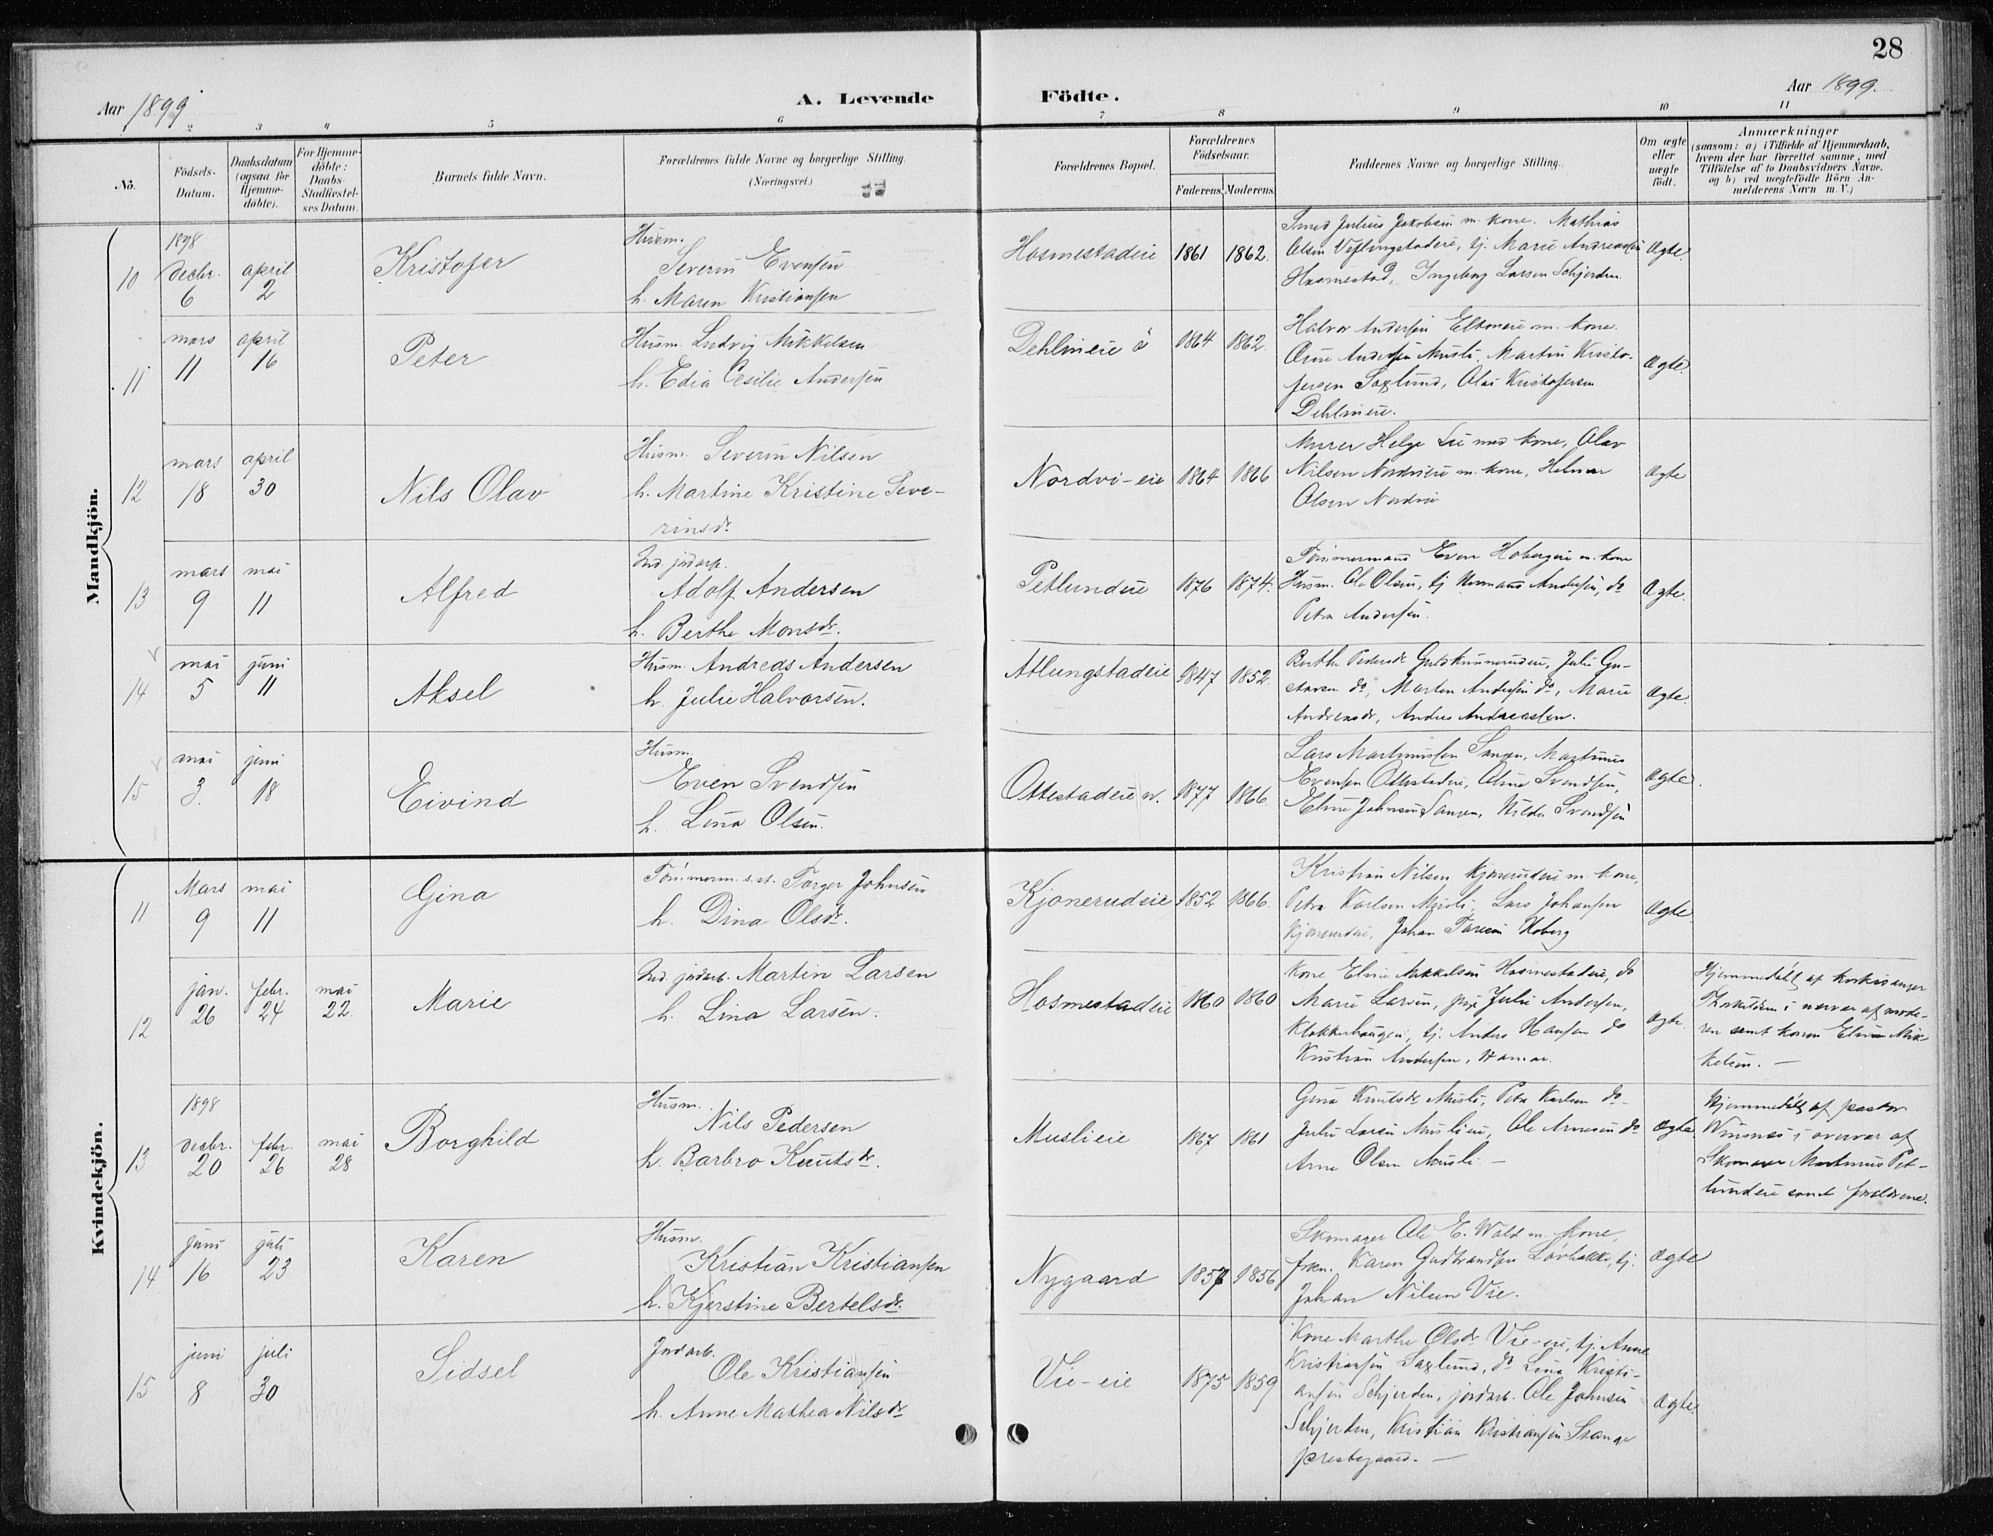 28
Aar 1899
A. Levende
Födte.
Aar 1899.
2 3 4 5 6 7 8 9 10 11
No.
Födsels-
Datum.
Daabsdatum
(ogsaa for
Hjemme-
döbte).
For Hjemme-
döbte:
Daabs-
Stadfæstel-
ses Datum.
Barnets fulde Navn.
Forældrenes fulde Navne og borgerlige Stilling.
(Næringsvei.)
Forældrenes Bopæl.
Forældrenes
Födselsaar.
Faderens. Moderens.
Faddernes Navne og borgerlige Stilling.
Om ægte
eller
uægte
födt.
Anmærkninger
(saasom: a) i Tilfælde af Hjemmedaab,
hvem der har forrettet samme, med
Tilföielse af to Daabsvidners Navne.
og b) ved uægtefödte Börn An-
melderens Navn m. V.)
Mandkjön.
10
1898
decbr.
6
april
2
Kristofer
Husm.
Severin Evensen
h. Maren Kristiansen
Hosmestadeie
1861
1862.
Smed Julius Jakobsen m. kone. Mathias
Olsen Veflingstadeie, tj. Marie Andreassen
Hosmestad, Ingeborg Larsen Schjerden
ægte
11
mars
11
april
16
Peter
Husm. Ludvig Mikkelsen
h. Edia Cesilie Andersen
Dehlineie ö
1864
1862.
Halvor Andersen m. kone.
Andersen Musli, Martin Kristo-
fersen Saxlund, Olai Kristofersen
Dehlineie.
ægte.
12
mars
18
april
30
Nils Olav
Husm. Severin Nilsen
h. Martine Kristine Seve-
rinsdr.
Nordvi-eie
1864
1866
Murer Helge Lie med kone, Olav
Nilsen Nordvieie m. kone, Helmer
Olsen Nordvie
ægte
13
mars
9
mai
11
Alfred
Ind. jordarb.
Adolf Andersen
h. Berthe Monsdr.
Petlundeie
1876
1874.
Tömmermand Even Hobergeie m. kone
Husm. Ole Olsen, tj. Herman Andersen, do
Petra Andersen.
ægte.
14
mai
5
juni
11
Aksel
Husm. Andreas Andersen
h. Julie Halvorsen.
Atlungstadeie
1847
1852.
Berthe Pedersdr Guldhusnerudeie, Julie Gu-
stavsen do, Martin Andersen do, Marie
Andreasdr, Andreas Andreassen.
ægte.
15
mai
3.
juni
18
Eivind
Husm.
Even Svendsen
h. Lina Olsen.
Ottestadeie n.
1877
1866
Lars Martinussen Sangen, Martinus
Evensen Ottestadeie, Oline Svendsen,
Eline Johnsen Sangen, Hilda Svendsen
ægte.
Kvindekjön.
11
Mars
9
mai
11
Gina
Tömmerm. s.st. Torger Johnsen
h. Dina Olsdr.
Kjonerudeie
1852
1866.
Kristian Nilsen Kjonerudeie m. kone,
Petra Karlsen Musli, Lars Johansen
Kjonerudeie, Johan Hoberg
ægte.
12
jan.
26
febr.
24
mai
22.
Marie
Ind. jordarb. Martin Larsen
h. Lina Larsen.
Hosmestadeie
1860
1860
Kone Eline Mikkelsen Hosmestadeie, do
Marie Larsen, pige Julie Andersen,
Klokkerhaugen, tj. Anders Hansen do
Kristian Andersen, Hamar.
ægte.
Hjemmedöbt af kirkesanger
Torkildsen i nærvær af mode-
ren samt konen Eline Mik-
kelsen. —
13
1898
decbr.
20
febr.
26
mai
28
Borghild
Husm.
Nils Pedersen
h. Barbro Knutsdr.
Muslieie
1867
1861
Gina Knutsdr Musli, Petra Karlsen do
Julie Larsen Muslieie, Ole Arnesen do
Arne Olsen Musli —
ægte
Hjemmedöbt af pastor
Winsnes i overvær af
Skomager Martinus Pet-
lundeie samt forældrene.
14
juni
16
juli
23
Karen
Husm.
Kristian Kristiansen
h. Kjerstine Bertelsdr.
Nygaard
1857
1856
Skomager Ole E. Wold m. kone,
frøk. Karen Gudbrandsen Løvbakke, tj.
Johan Nilsen Vie.
ægte
15
juni
8
juli
30
Sidsel
Jordarb.
Ole Kristiansen
h. Anne Mathea Nilsdr
Vie-eie
1875
1859
Kone Marthe Olsdr Vie-eie, tj. Anne
Kristiansen Saxlund, do Lina Kristi-
ansen Schjerden, jordarb. Ole Johnsen
Schjerden, Kristian Kristiansen Stange
præstegaard. —
ægte.